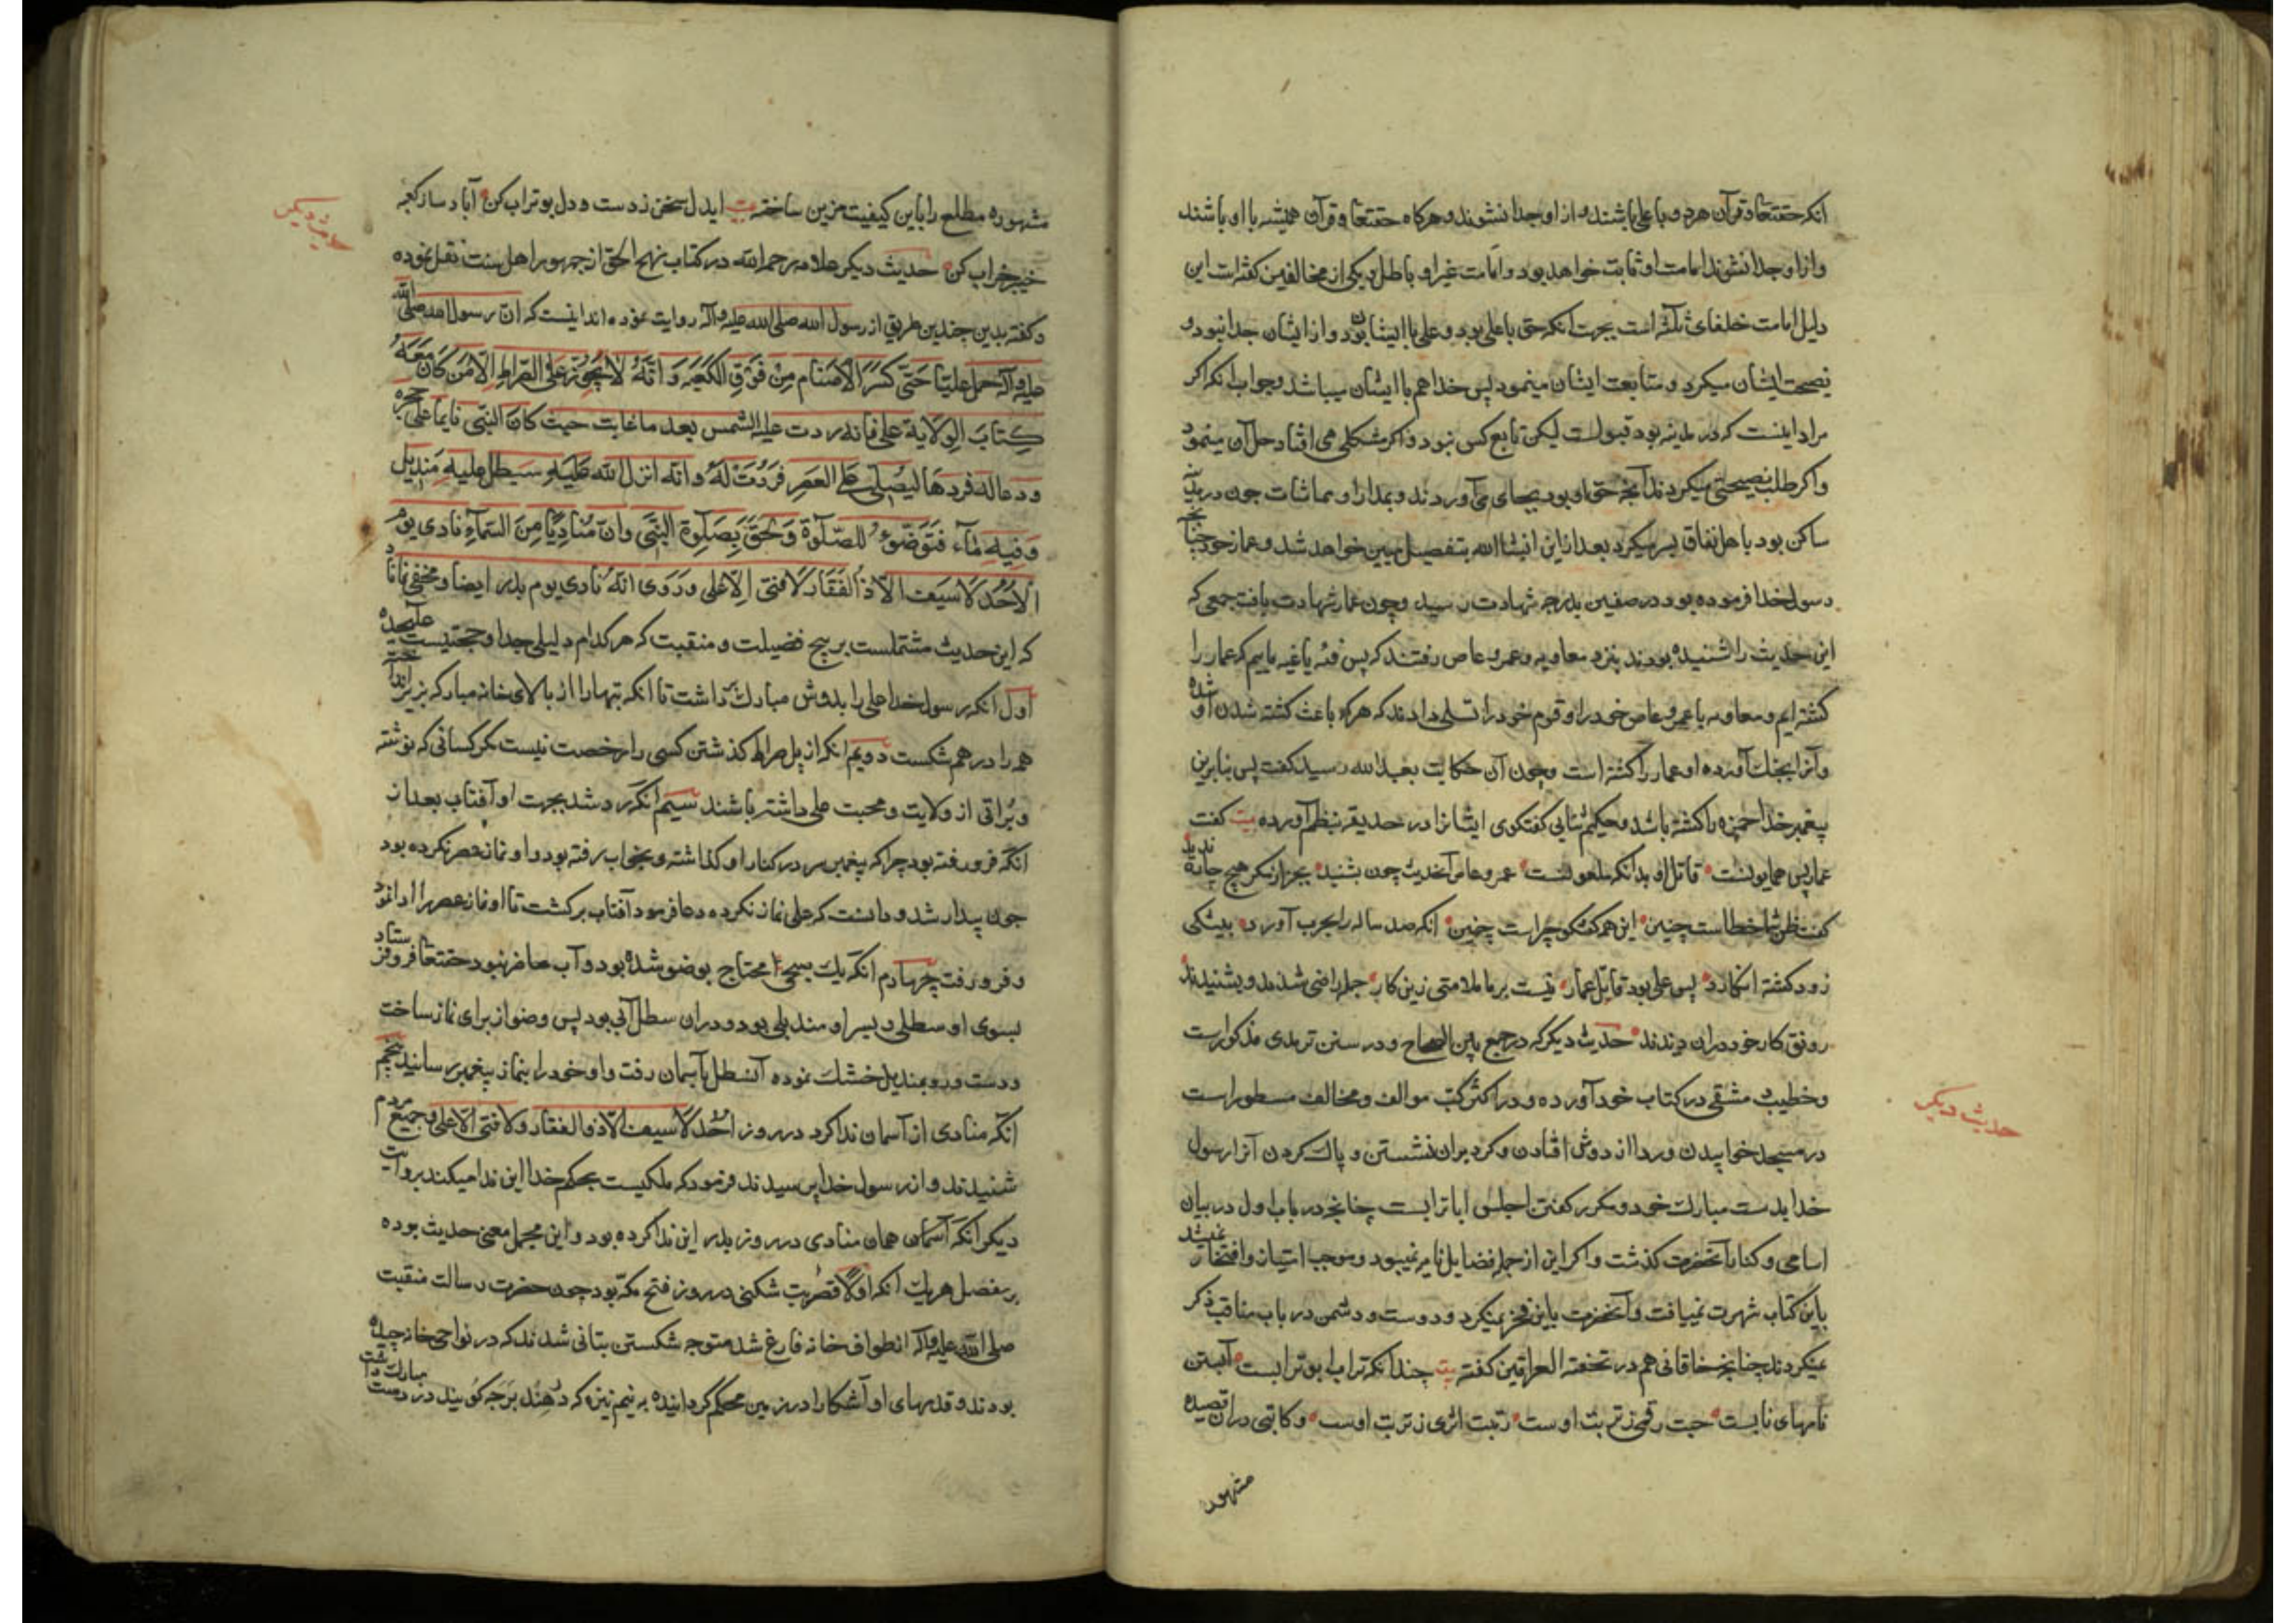 انکه حقتعا و قرآن هردو با علی باشند و از او جدا نشوند و هرکاه حقتعا و قرآن همیشه با او باشند
و از او جدا نشوند امامت او ثابت خواهد بود و امامت غیر او باطل و یکی از مخالفین کفته است این
دلیل امامت خلفای ثلثه است بجهت انکه حق با علی بود و علی با ایشان بود و از ایشان جدا نبود و
نصیحت ایشان میکرد و متابعت ایشان مینمود پس خدا هم با ایشان میباشد و جواب انکه اکر
مراد اینست که در مدینه بود قبولست لیکن تابع کس نبود و اکر مشکلی می افتاد حل آن مینمود
و اکر طلب نصیحتی میکردند آنچه حق او بود بجای می آوردند و بمدارا و مماشات چون در مدینه
ساکن بود با اهل نفاق بسر میکرد بعد از این انشا الله بتفصیل مبین خواهد شد و عمار خود چنانچه
رسول خدا فرموده بود در صفین بدرجه شهادت رسید و چون عمار شهادت یافت جمعی که
این حدیث را شنیده بودند بنزد معاویه و عمرو عاص رفتند که پس فئه یاغیه ماییم که عمار را
کشته ایم و معاویه با عمرو عاص خود را و قوم خود را تسلی دادند که هرکه باعث کشته شدن او شده
و آنرا بجنک آورده او عمار را کشته است و چون آن حکایت بعبد الله رسید کفت پس بنابرین
پیغمبر خدا حمزه را کشته باشد و حکیم ثنایی کفتکوی ایشانرا در حدیقه بنظم آورده بیت کفت
عمار پس همایونست قاتل او بدانکه ملعونست عمرو عاص آنحدیث چون بشنید بجز از مکر هیچ چاره ندید
کفت ظن شما خطاست چنین این همه کفتکو چراست چنین انکه صد ساله را بحرب آورد بیشکی
زود کشته انکارد پس علی بود قاتل عمار نیست بر ما ملامتی زین کار جمله راضی شدند و بشنیدند
رونق کار خود در ان دیدند حدیث دیکر که در جمع بین الصحاح و در سنن ترمدی مذکور است
و خطیب دمشقی در کتاب خود آورده و در اکثر کتب موالف و مخالف مسطور است
در مسجد خوابیدن و ردا از دوش افتادن و کرد بران نشستن و پاک کردن آنرا رسول
خدا بدست مبارک خود و مکرر کفتن اجلس ابا ترابست چنانچه در باب اول در بیان
اسامی و کنای آنحضرت کذشت و اکر این از جمله فضایل نامیه نمیبود و موجب امتیاز و افتخار نمیشد
باین کتاب شهرت نمییافت و آنحضرت باین فخر نمیکرد و دوست و دشمن در باب مناقب ذکر
نمیکردند چنانچه خاقانی هم در تحفة العراقین کفته بیت چندانکه تراب بوترابست آبستن
نامهای نابست حبت رقمی ز تربت اوست رتبت اثری ز تربت اوست و کاتبی در ان قصیده
مشهوره
حدیث دیکر
مشهوره مطلع را باین کیفیت مزین ساخته بیت ایدل سخن ز دست و دل بوتراب کن آباد ساز کعبه
خیبر خراب کن حدیث دیکر علامه رحمه الله در کتاب نهج الحق از جمهور اهل سنت نقل نموده
و کفته بدین چندین طریق از رسول الله صلی الله علیه و آله روایت نموده اند اینست که ان رسول الله صلی الله
علیه و آله حمل علیّا حَتّی کَسَرَ الاَصْنام مِنْ فَوْقِ الکَعْبَه وَ اَنَّهُ لا یَجُوز عَلَی الصِّراطِ اِلّا مَن کان مَعَهُ
کِتاب الوِلایة علی فانه ردت علیه الشمس بعد ما غابت حیث کان النّبی نایما علی حجره
و دعا له فردها لیُصلّی عَلِی العَصر فَرُدّت لَهُ وانّه انزل الله عَلَیهِ سَیطل علیه مَندیل
وَ فیهِ مآء فَتَوَضّؤ لِلصّلوة وَ لَحِقَ بِصَلوةِ النّبی وان مُنادِیًا مِنَ السّمآءِ نادی یوم
الاُحُد لا سَیف الّا ذُ الفَقار لا فتی اِلّا علی ورَوی انّهُ نادی یوم بدر ایضا و مخفی نماناد
که این حدیث مشتملست بر پنج فضیلت و منقبت که هرکدام دلیلی جدا و حجتیست علیحده
اول انکه رسول خدا علی را بدوش مبارک برداشت تا انکه بتهارا از بالای خانه مبارکه بزیر انداخت
همه را درهم شکست دویم انکه از پل صراط کذشتن کسی را رخصت نیست مکر کسانی که نوشته
و براتی از ولایت و محبت علی داشته باشند سیم انکه رد شد بجهت او آفتاب بعد از
انکه فرو رفته بود چرا که پیغمبر سر در کنار او کذاشته و بخواب رفته بود و او نماز عصر نکرده بود
چون بیدار شد و دانست که علی نماز نکرده دعا فرمود آفتاب برکشت تا او نماز عصر را ادا نمود
و فرو رفت چهارم انکه یک صبحی محتاج بوضو شده بود و آب حاضر نبود حقتعا فرو فرستاد
بسوی او سطلی و بسر او مندیلی بود و در ان سطل آبی بود پس وضو از برای نماز ساخت
و دست و رو بمندیل خشک نموده آن سطل بآسمان رفت و او خود را بنماز پیغمبر رسانید پنجم
انکه منادی از آسمان ندا کرد در روز اُحُد لا سیف الّا ذو الفقار و لا فتی الّا علی و جمیع مردم
شنیدند و از رسول خدا پرسیدند فرمود که ملکیست بحکم خدا این ندا میکند بروایت
دیکر آنکه آسمان همان منادی در روز بدر این ندا کرده بود و این مجمل معنی حدیث بوده
بر مفصل هریک انکه اولا قصه بت شکنی در روز فتح مکه بود چون حضرت رسالت منقبت
صلی الله علیه و آله از طواف خانه فارغ شد متوجه شکستن بتانی شدند که در نواحی خانه چیده
بودند و قدمهای او آشکارا در زمین محکم کردانیده به نیم نیزه که در هند برجه کویند در دست مبارک داشت
حدیث دیکر